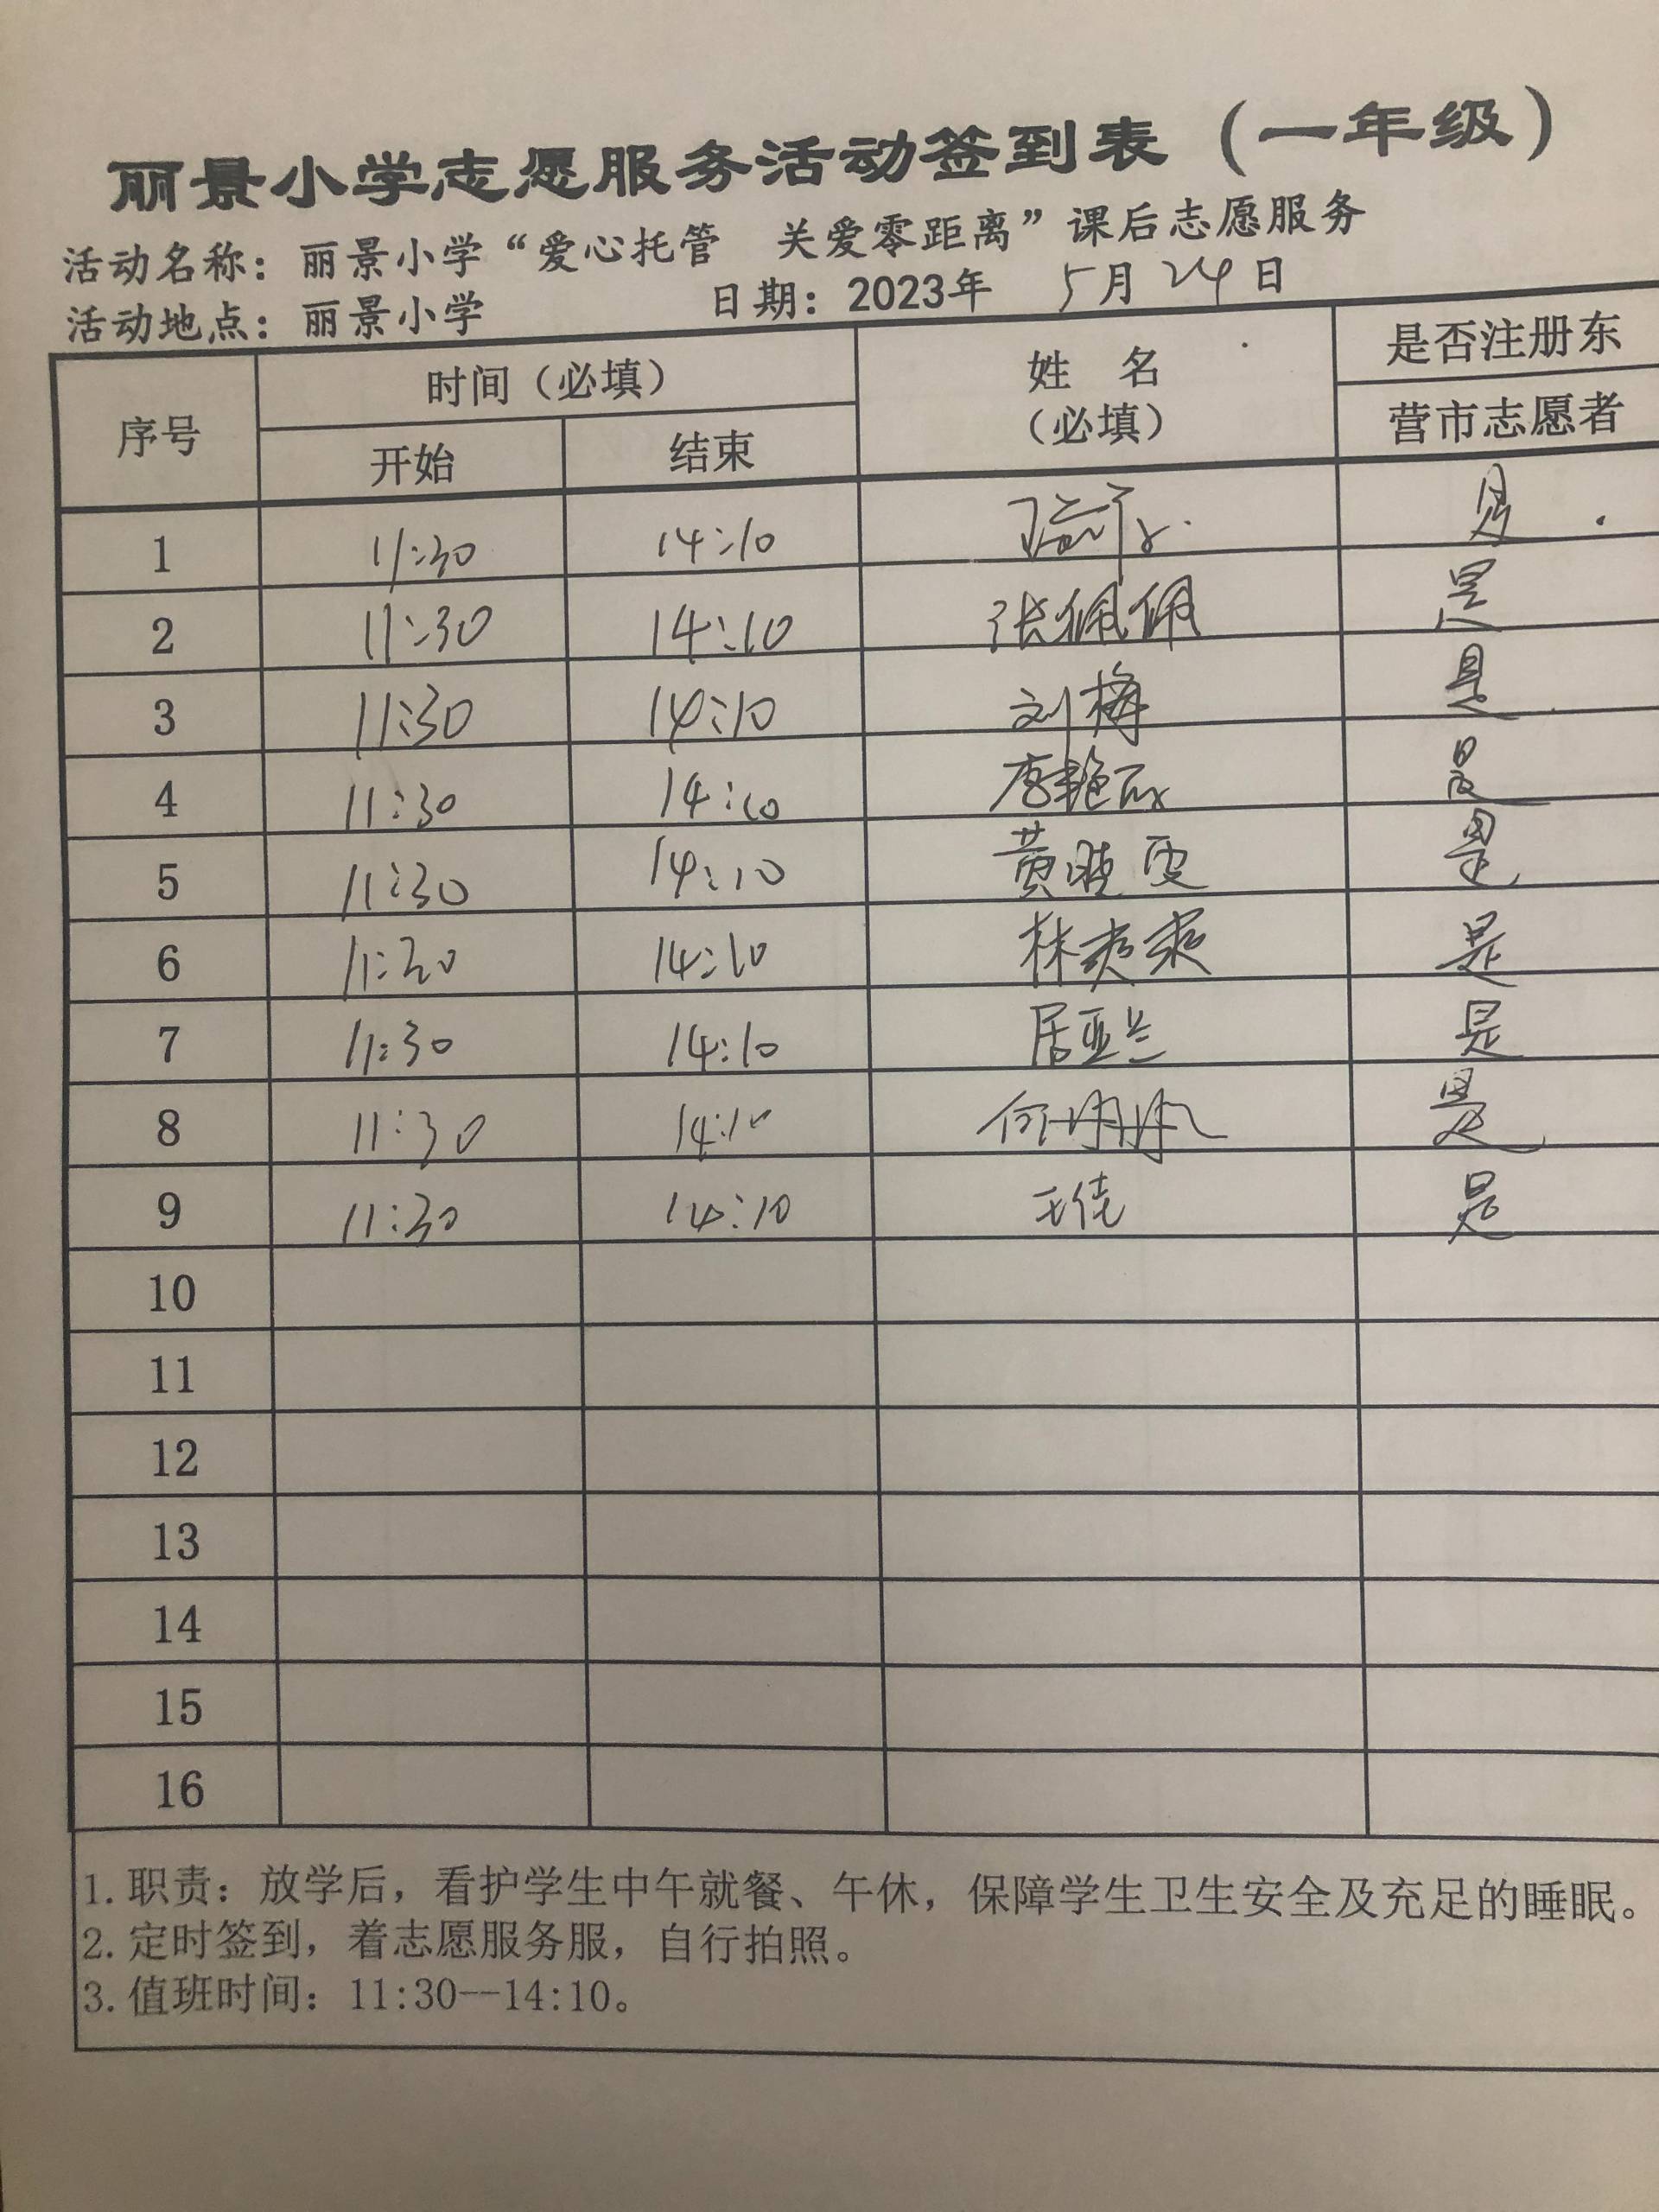 丽景小学志愿服务活动签到表（一年级）
活动名称：丽景小学“爱心托管 关爱零距离”课后志愿服务
活动地点：丽景小学 日期：2023年 5月24日
序号 时间（必填） 姓 名 （必填） 是否注册东
营市志愿者
开始 结束
1 11:30 14:10 是
2 11:30 14:10 张佩佩 是
3 11:30 14:10 刘梅 是
4 11:30 14:10 唐艳 是
5 11:30 14:10 黄晓雯 是
6 11:30 14:10 林爽爽 是
7 11:30 14:10 居亚兰 是
8 11:30 14:10 何 是
9 11:30 14:10 王佳 是
10
11
12
13
14
15
16
1.职责：放学后，看护学生中午就餐、午休，保障学生卫生安全及充足的睡眠。
2.定时签到，着志愿服务服，自行拍照。
3.值班时间：11:30--14:10。